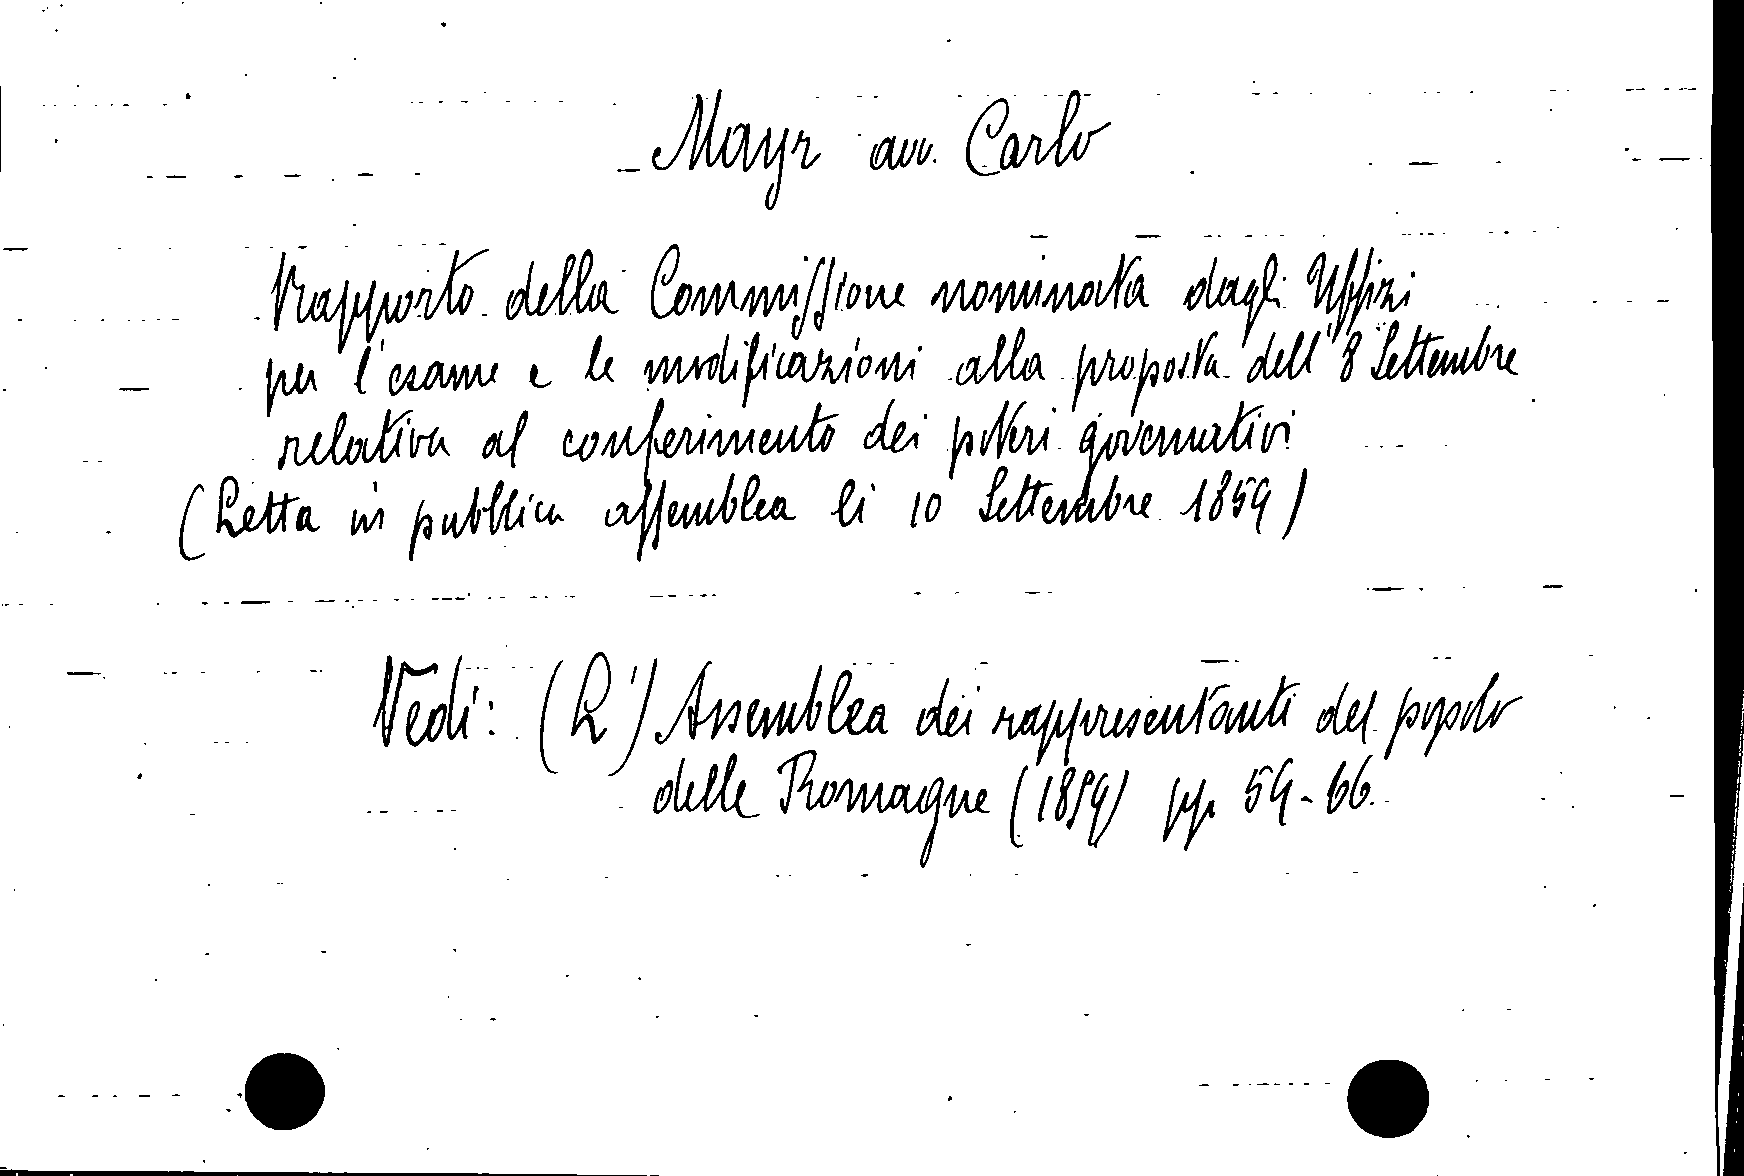 Mayr avv. Carlo
Rapporto della Commissione nominata dagli Uffizi
per l'esame e le modificazioni alla proposta dell'8 Settembre
relativa al conferimento dei poteri governativi
(Letta in pubblica assemblea li 10 Settembre 1859)
Vedi: (L') Assemblea dei rappresentanti del popolo
delle Romagne (1859) pp. 59-66.